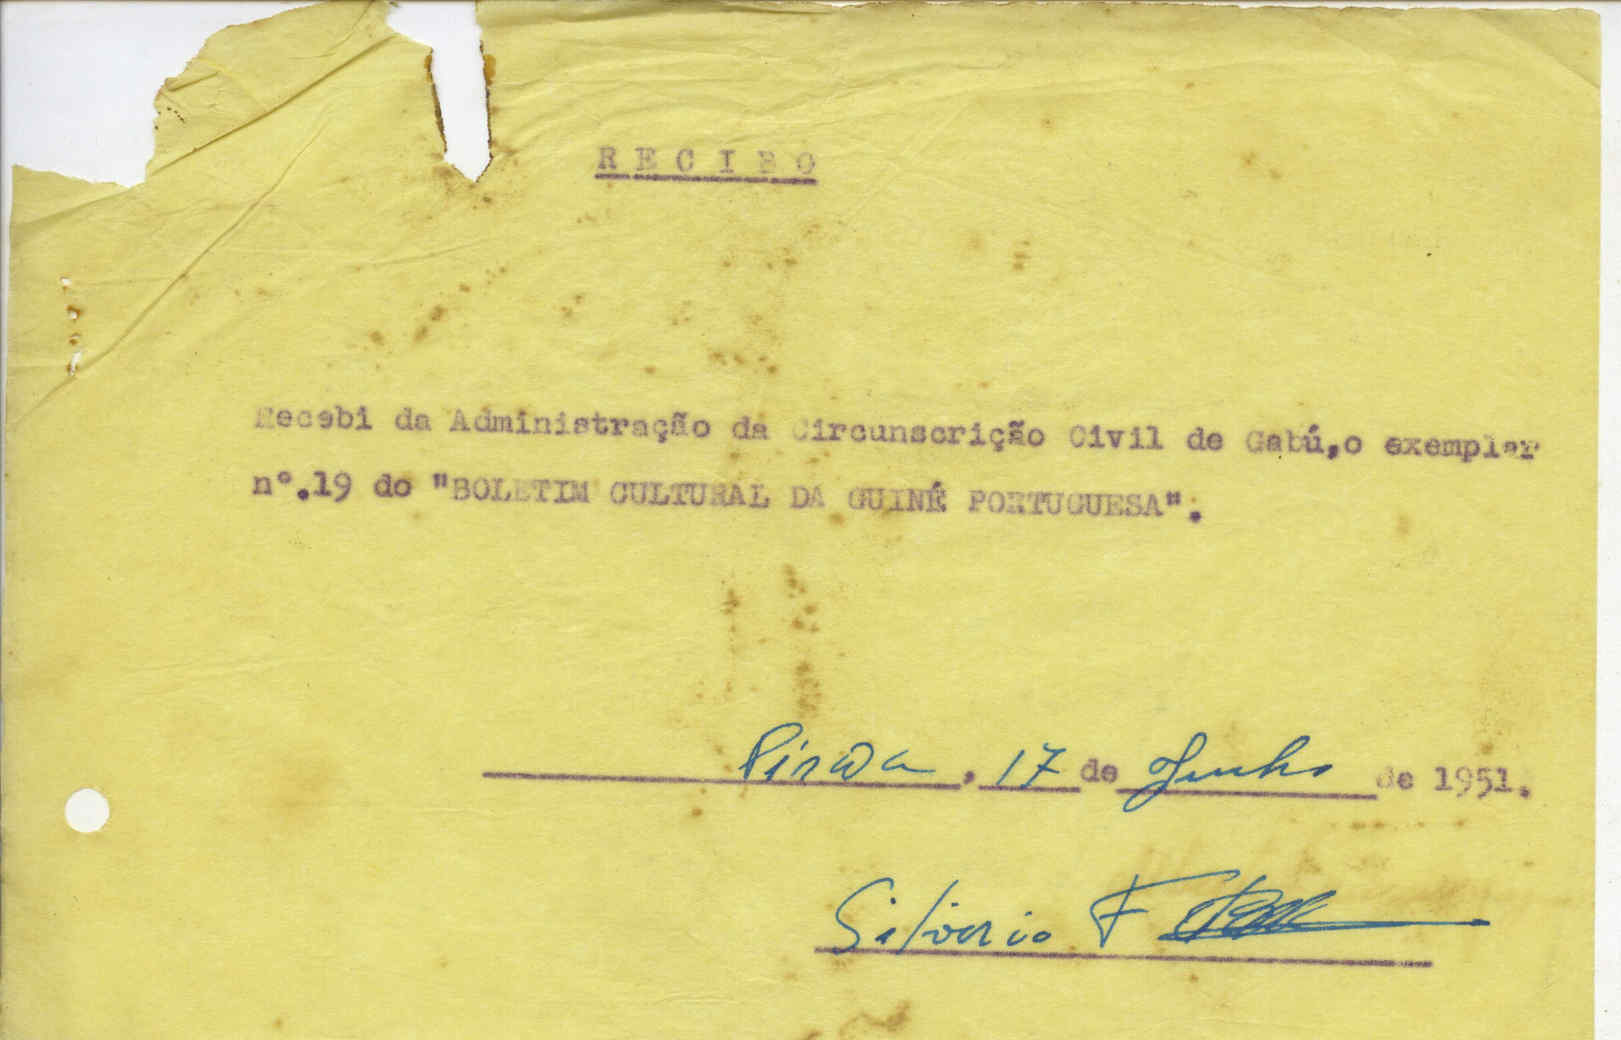 RECIBO
Recebi da Administração da Circunscrição Civil de Gabú,o exemplar
nº.19 do "BOLETIM CULTURAL DA GUINÉ PORTUGUESA".
Pirada, 17 de Junho de 1951.
Silverio F